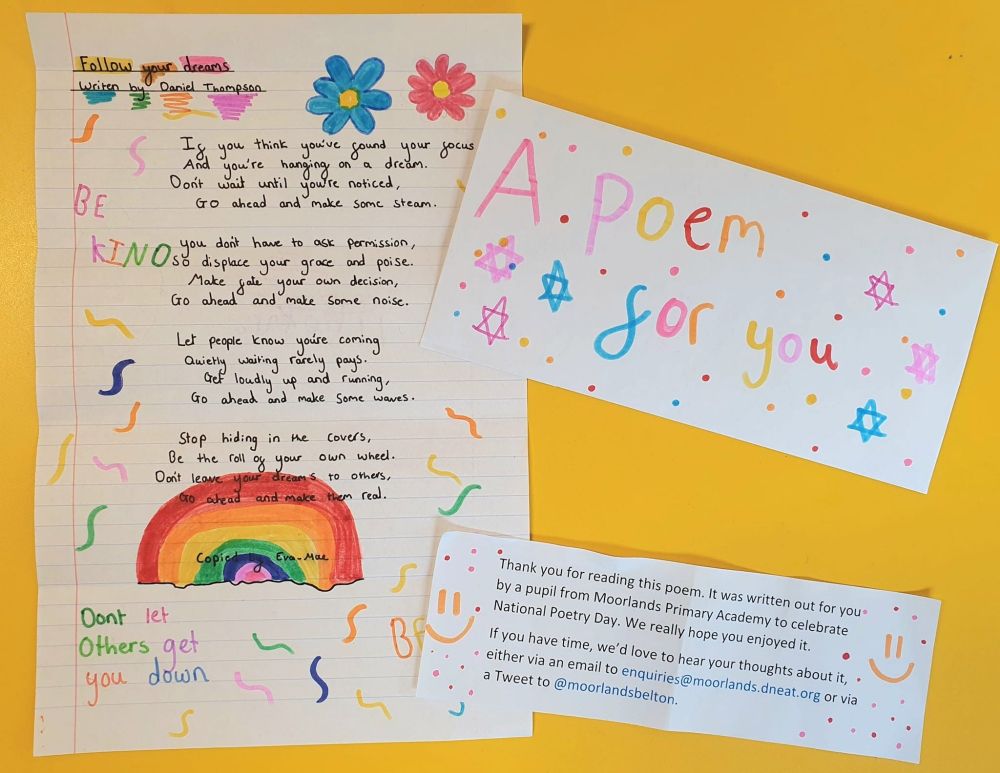 Follow your dreams
Writen by Daniel Thompson
If you think you've found your focus
And you're hanging on a dream.
Don't wait until you're noticed,
Go ahead and make some steam.
BE
KIND
you don't have to ask permission,
so displace your grace and poise.
Make fate your own decision,
Go ahead and make some noise.
Let people know you're coming
Quietly waiting rarely pays.
Get loudly up and running,
Go ahead and make some waves.
Stop hiding in the covers,
Be the roll of your own wheel.
Don't leave your dreams to others,
Go ahead and make them real.
Copied by Eva-Mae
Dont let
Others get
you down
BE
A poem
for you
Thank you for reading this poem. It was written out for you
by a pupil from Moorlands Primary Academy to celebrate
National Poetry Day. We really hope you enjoyed it.
If you have time, we'd love to hear your thoughts about it,
either via an email to enquiries@moorlands.dneat.org or via
a Tweet to @moorlandsbelton.